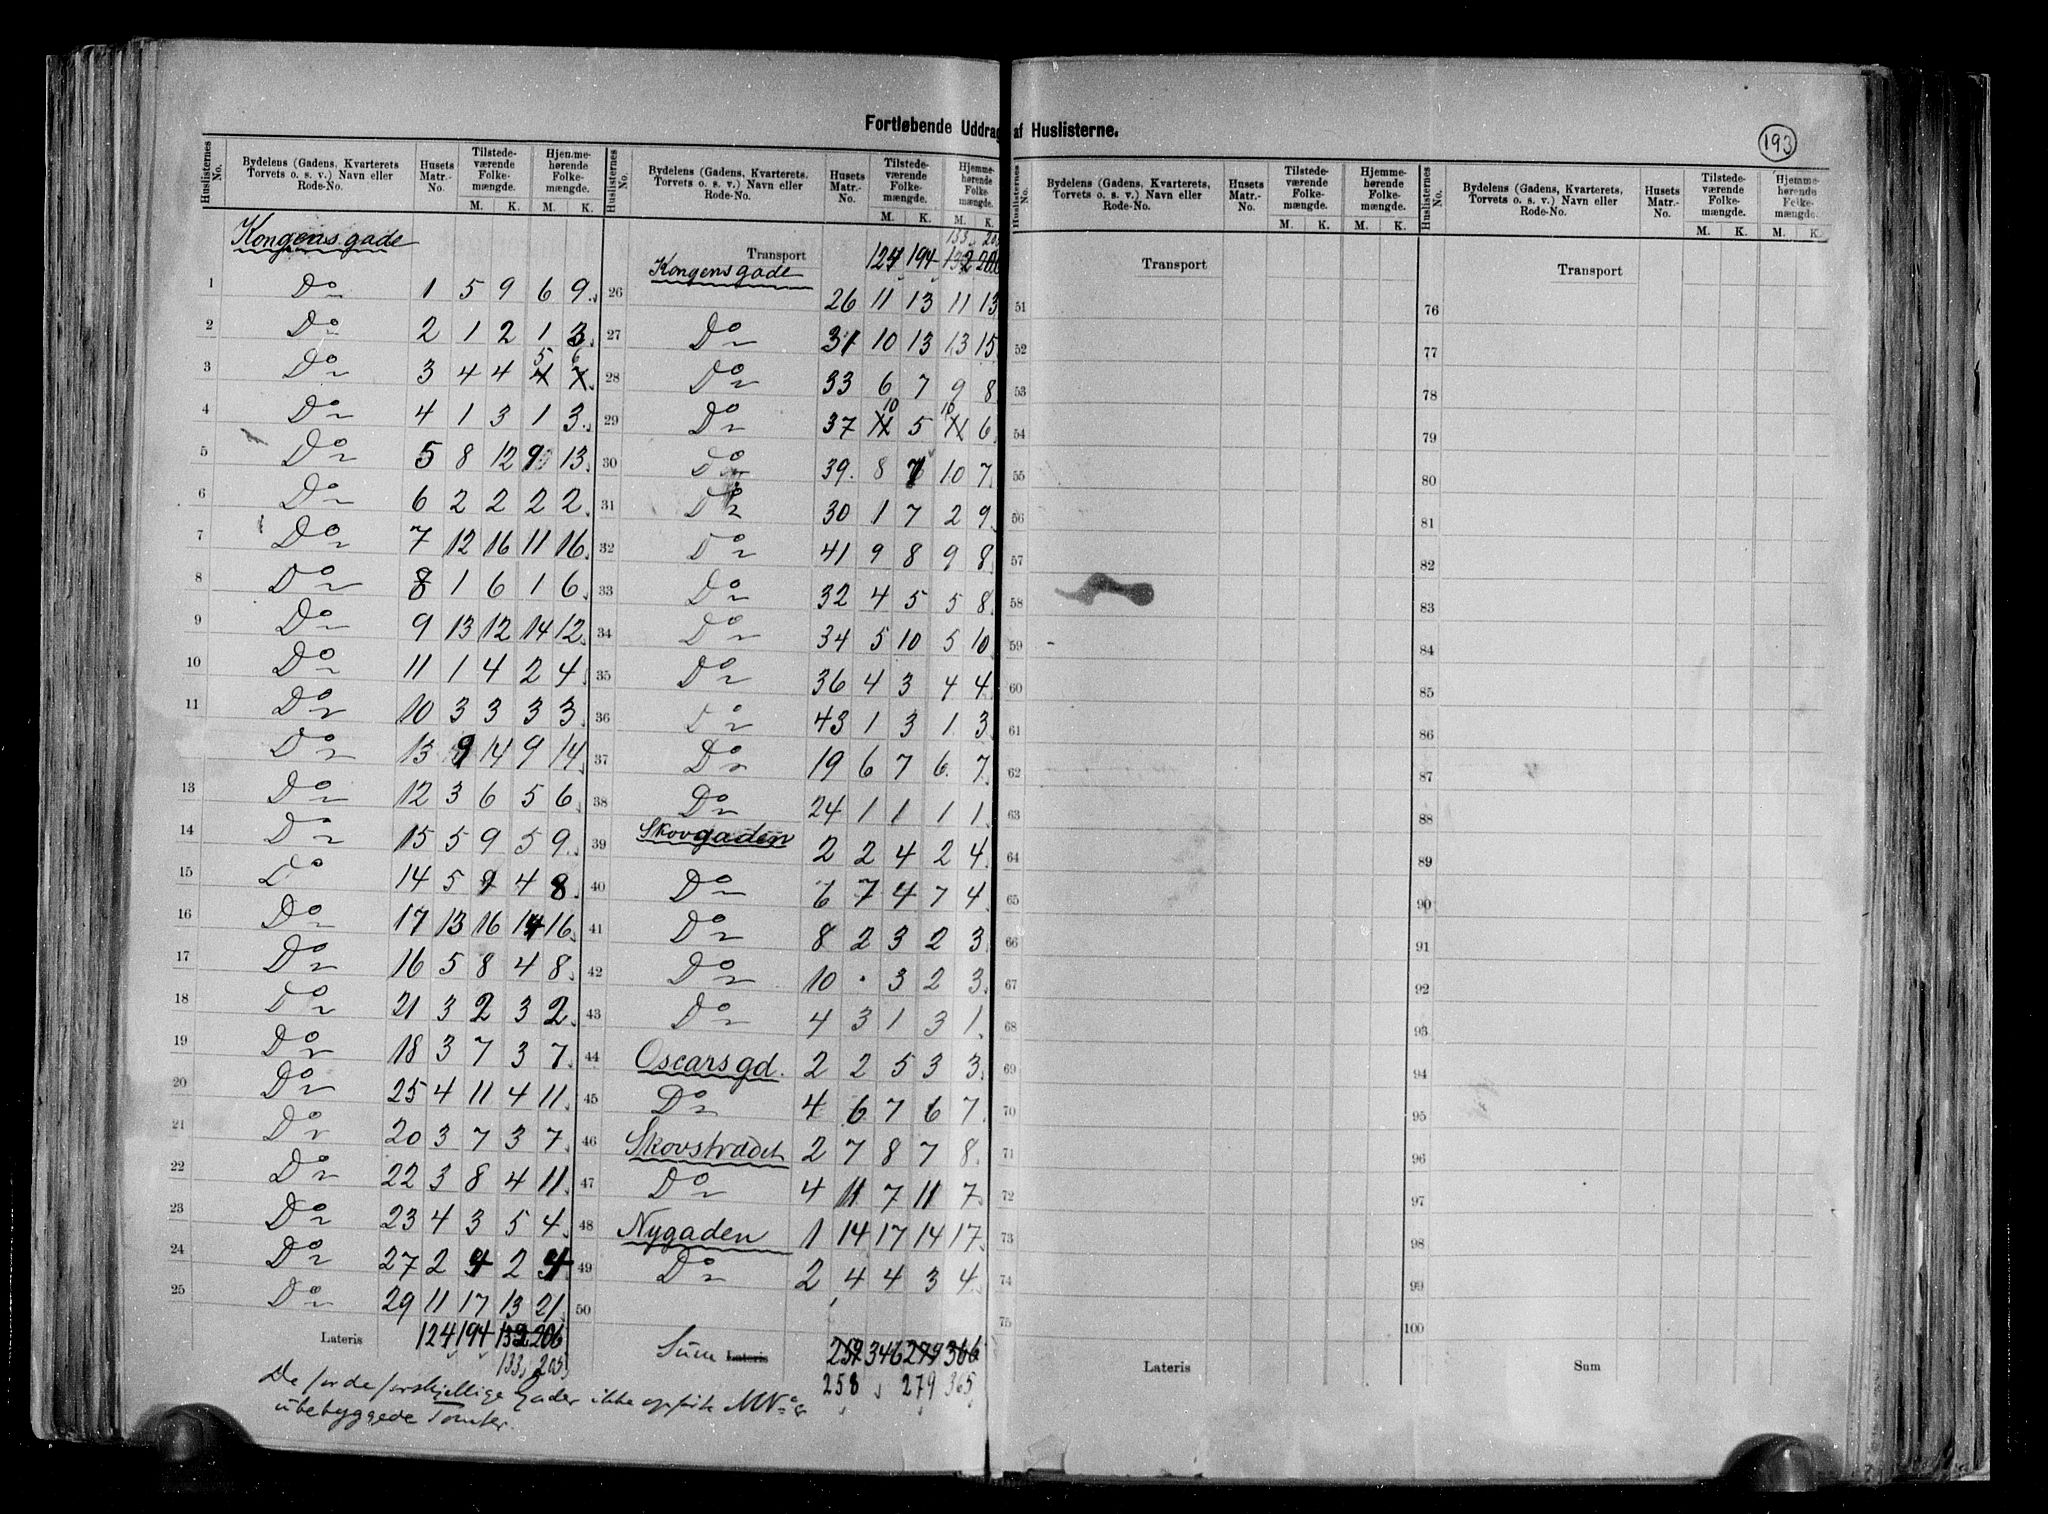 Fortløbende Uddrag af Huslisterne.
193
Huslisternes No. Bydelens (Gadens, Kvarterets Torvets o. s. v.) Navn eller Rode-No. Husets Matr.-No. Tilstedeværende Folkemængde. M. K. Hjemmehørende Folkemængde. M. K.
Kongensgade
1 Do 1 5 9 6 9
2 Do 2 1 2 1 3
3 Do 3 4 4 5 6
4 Do 4 1 3 1 3
5 Do 5 8 12 9 13
6 Do 6 2 2 2 2
7 Do 7 12 16 11 16
8 Do 8 1 6 1 6
9 Do 9 13 12 14 12
10 Do 11 1 4 2 4
11 Do 10 3 3 3 3
Do 13 9 14 9 14
13 Do 12 3 6 5 6
14 Do 15 5 9 5 9
15 Do 14 5 9 4 8
16 Do 17 13 16 14 16
17 Do 16 5 8 4 8
18 Do 21 3 2 3 2
19 Do 18 3 7 3 7
20 Do 25 4 11 4 11
21 Do 20 3 7 3 7
22 Do 22 3 8 4 11
23 Do 23 4 3 5 4
24 Do 27 2 4 2 4
25 Do 29 11 17 13 21
Lateris 124 194 132 206
133 205
De for de forskjellige Gader ikke opførte MNo er
ubebyggede Tomter.
Huslisternes No. Bydelens (Gadens, Kvarterets. Torvets o. s. v.) Navn eller Rode-No. Husets Matr.-No. Tilstedeværende Folkemængde. M. K. Hjemmehørende Folkemængde. M. K.
133 205
Transport 124 194 132 206
26 Kongensgade 26 11 13 11 13
27 Do 31 10 13 13 15
28 Do 33 6 7 9 8
29 Do 37 10 5 10 6
30 Do 39 8 7 10 7
31 Do 30 1 7 2 9
32 Do 41 9 8 9 8
33 Do 32 4 5 5 8
34 Do 34 5 10 5 10
35 Do 36 4 3 4 4
36 Do 43 1 3 1 3
37 Do 19 6 7 6 7
38 Do 24 1 1 1 1
39 Skovgaden 2 2 4 2 4
40 Do 6 7 4 7 4
41 Do 8 2 3 2 3
42 Do 10 · 3 2 3
43 Do 4 3 1 3 1
44 Oscarsgd. 2 2 5 3 3
45 Do 4 6 7 6 7
46 Skovstrædet 2 7 8 7 8
47 Do 4 11 7 11 7
48 Nygaden 1 14 17 14 17
49 Do 2 4 4 3 4
50
Sum Lateris 259 346 279 366
258 279 365
Huslisternes No. Bydelens (Gadens, Kvarterets, Torvets o. s. v.) Navn eller Rode-No. Husets Matr.-No. Tilstedeværende Folkemængde. M. K. Hjemmehørende Folkemængde. M. K.
Transport
51
52
53
54
55
56
57
58
59
60
61
62
63
64
65
66
67
68
69
70
71
72
73
74
75
Lateris
Huslisternes No. Bydelens (Gadens, Kvarterets, Torvets o. s. v.) Navn eller Rode-No. Husets Matr.-No. Tilstedeværende Folkemængde. M. K. Hjemmehørende Folkemængde. M. K.
Transport
76
77
78
79
80
81
82
83
84
85
86
87
88
89
90
91
92
93
94
95
96
97
98
99
100
Sum